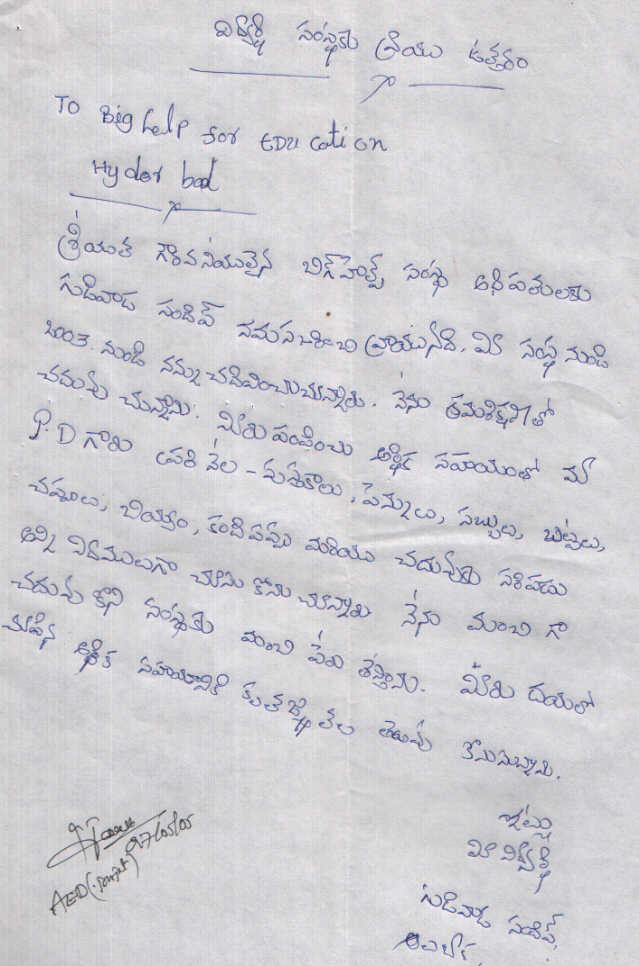 విద్యార్థి సంస్థకు వ్రాయు ఉత్తరం
To Big help for EDU cation
Hyder bad
శ్రీయుత గౌరవనియులైన బిగ్‌హెల్ప్ సంస్థ అధిపతులకు
గుడివాడ సందీప్ నమస్కరించి వ్రాయునది. మీ సంస్థ నుండి
నన్ను చదివించుచున్నారు. నేను క్రమశిక్షణతో
చదువు చున్నాను. మీరు పంపించు ఆర్థిక సహాయంతో మా
P.D గారు ప్రతి నెల - పుస్తకాలు, పెన్నులు, సబ్బులు, బట్టలు,
చెప్పులు, బియ్యం, కందిపప్పు మరియు చదువుకు సరిపడు
అన్ని చూసు కొను చున్నారు నేను మంచి గా
చదువు కొని సంస్థకు మంచి పేరు తెస్తాను. మీరు దయతో
చూపిన ఆర్థిక సహాయానికి కృతజ్ఞతలు తెలుపు కొనుచున్నాను.
ఇట్లు
మీ విద్యార్థి
గుడివాడ సందీప్.
27/05/05
AED